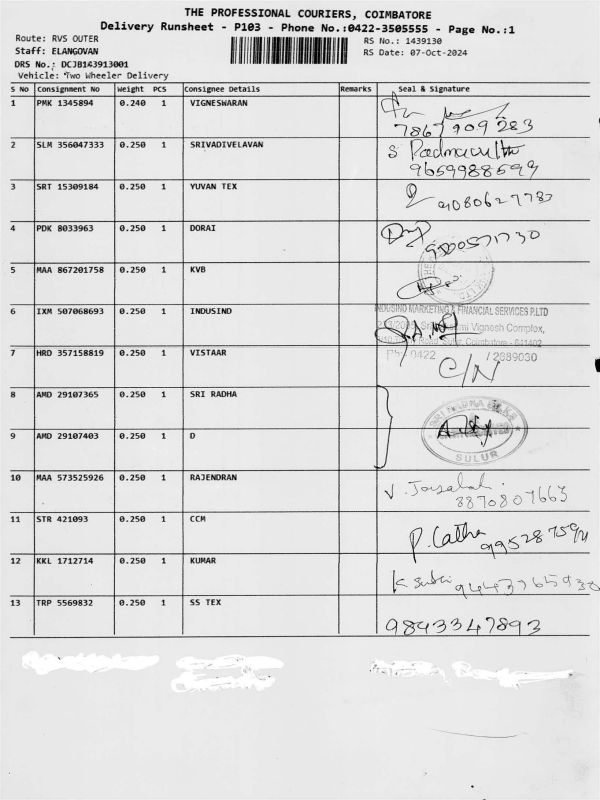 THE PROFESSIONAL COURIERS, COIMBATORE
Delivery Runsheet - P103 - Phone No.:0422-3505555 - Page No.:1
Route: RVS OUTER
RS No.: 1439130
Staff: ELANGOVAN
RS Date: 07-Oct-2024
DRS No.: DCJB143913001
Vehicle: Two Wheeler Delivery
S No Consignment No Weight PCS Consignee Details Remarks Seal & Signature
1 PMK 1345894 0.240 1 VIGNESWARAN
7867 909 283
2 SLM 356047333 0.250 1 SRIVADIVELAVAN
9659988599
3 SRT 15309184 0.250 1 YUVAN TEX
9080627787
4 PDK 8033963 0.250 1 DORAI
9500571730
5 MAA 867201758 0.250 1 KVB
6 IXM 507068693 0.250 1 INDUSIND
INDUSIND MARKETING & FINANCIAL SERVICES P.LTD
Vignesh Complex,
Sulur, Coimbatore - 641402
7 HRD 357158819 0.250 1 VISTAAR
Ph: 0422 / 2689030
C/N
8 AMD 29107365 0.250 1 SRI RADHA
9 AMD 29107403 0.250 1 D
SULUR
10 MAA 573525926 0.250 1 RAJENDRAN
8870807663
11 STR 421093 0.250 1 CCM
P. Latha
12 KKL 1712714 0.250 1 KUMAR
13 TRP 5569832 0.250 1 SS TEX
9843347893